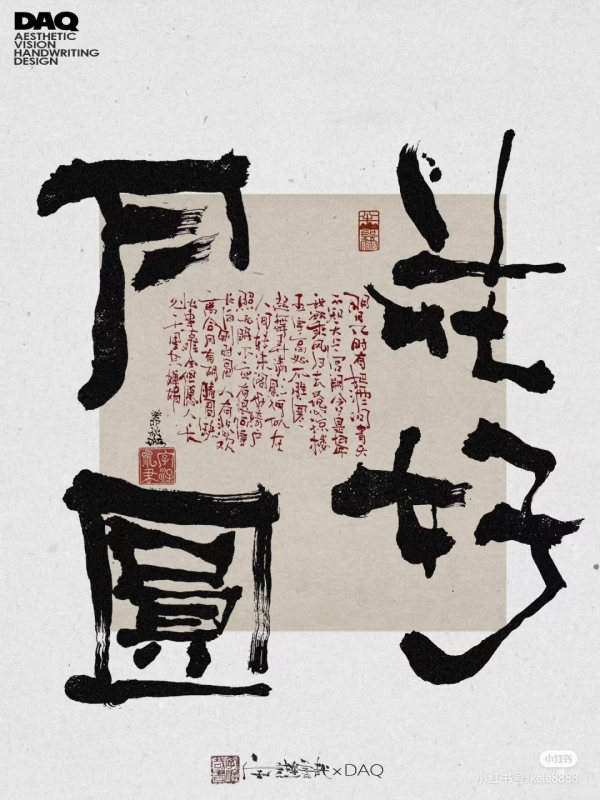 DAQ
AESTHETIC
VISION
HANDWRITING
DESIGN
花好
月圓
明月几时有把酒问青天
不知天上宫阙今夕是何年
我欲乘风归去又恐琼楼
玉宇高处不胜寒
起舞弄清影何似在
人间转朱阁低绮户
照无眠不应有恨何事
长向别时圆人有悲欢
离合月有阴晴圆缺
此事古难全但愿人长
久千里共婵娟
×DAQ
小红书
小红书号:kele8888